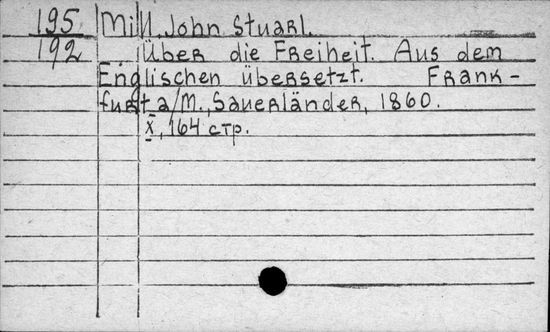 195 Mill, John Stuarl.
192 Über die Freiheit. Aus dem
Englischen übersetzt. Frank-
furt a/M., Sauerländer, 1860.
X, 164 стр.